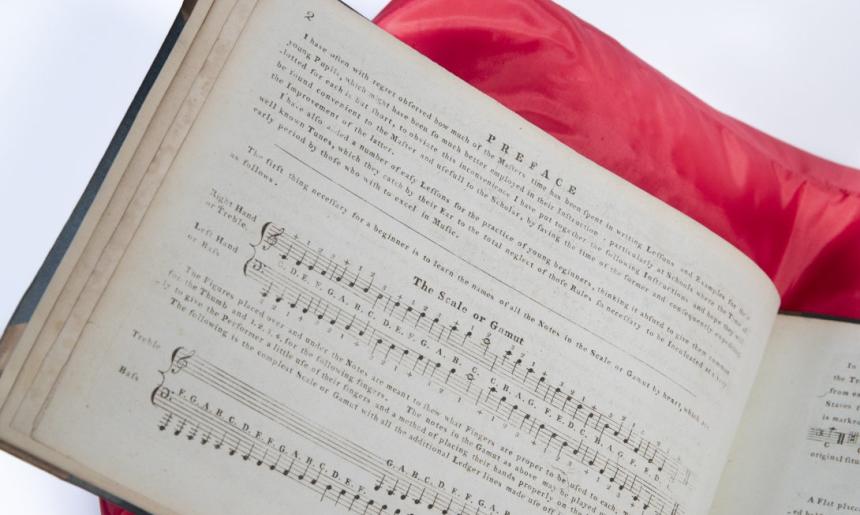 2
PREFACE
I have often with regret observed how much of the Masters time has been spent in writing Lessons and Examples for
young Pupils, which might have been so much better employed in their Instruction; particularly at Schools where the Time
-lotted for each is but short, to obviate this inconvenience I have put together the following Instructions and hope they will
be found convenient to the Master and usefull to the Scholar, by saving the time of the former and consequently expediting
the Improvement of the latter.
I have also added a number of easy Lessons for the practice of young beginners, thinking it absurd to give them common
well known Tunes, which they catch by their Ear to the total neglect of those Rules so necessary to be inculcated at
early period by those who wish to excel in Music.
The first thing necessary for a beginner is to learn the names of all the Notes in the Scale or Gamut by heart, which are
as follows.
The Scale or Gamut
Right Hand
or Treble.
Left Hand
or Bass
C. D. E. F. G. A. B. C. D. E. F. G. A. B. C. C. B. A. G. F. E. D. C. B. A. G. F. E. D.
The Figures placed over and under the Notes are meant to shew what Fingers are proper to be used to each,
for the Thumb and 1. 2. 3. 4. for the following fingers. The notes in the Gamut as above may be played
-ly to give the Performer a little use of their fingers and a method of placing their hands properly on the
The following is the compleat Scale or Gamut with all the additional Ledger lines made use of
Treble
Bass
F. G. A. B. C. D. E. F. G. A. B. C. D. E. F.
G. A. B. C. D. E. F. G. A.
In
the Tr
from
Staves
is marke
C
original situ
A Flat place